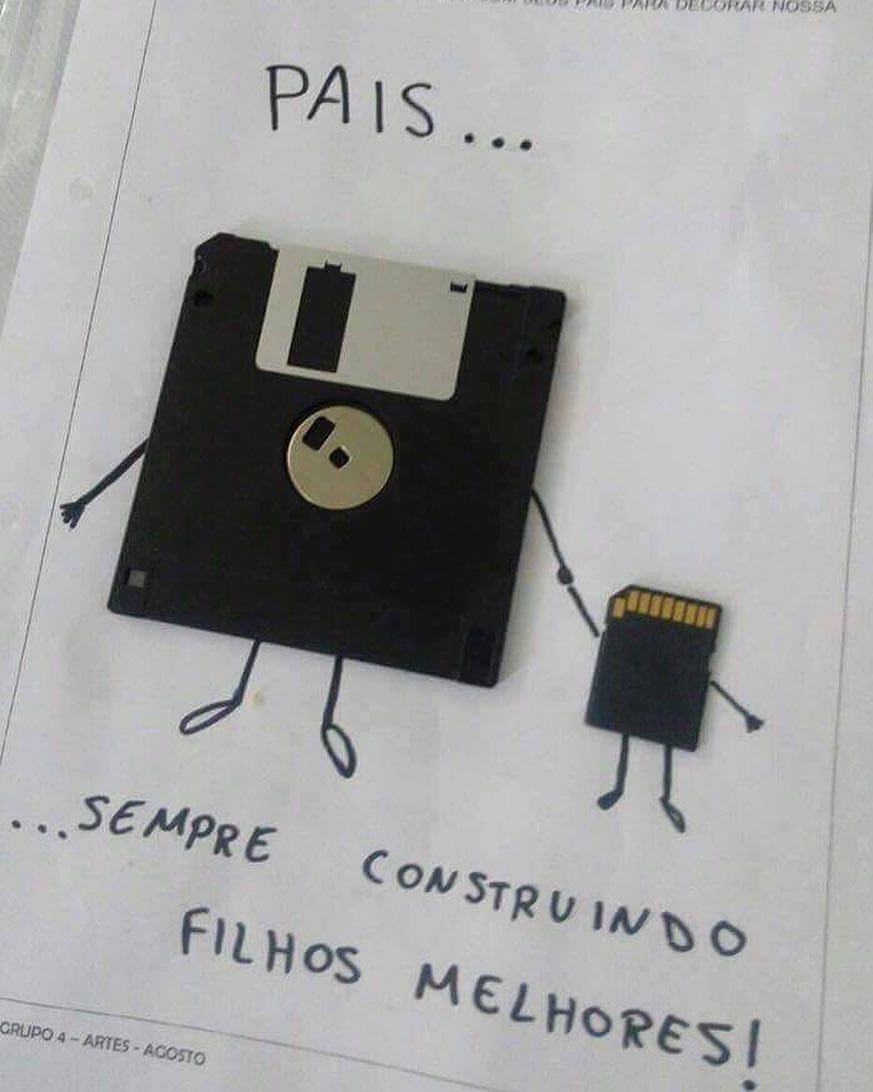 SEUS PAIS PARA DECORAR NOSSA
PAIS...
...SEMPRE CONSTRUINDO
FILHOS MELHORES!
GRUPO 4 – ARTES - AGOSTO